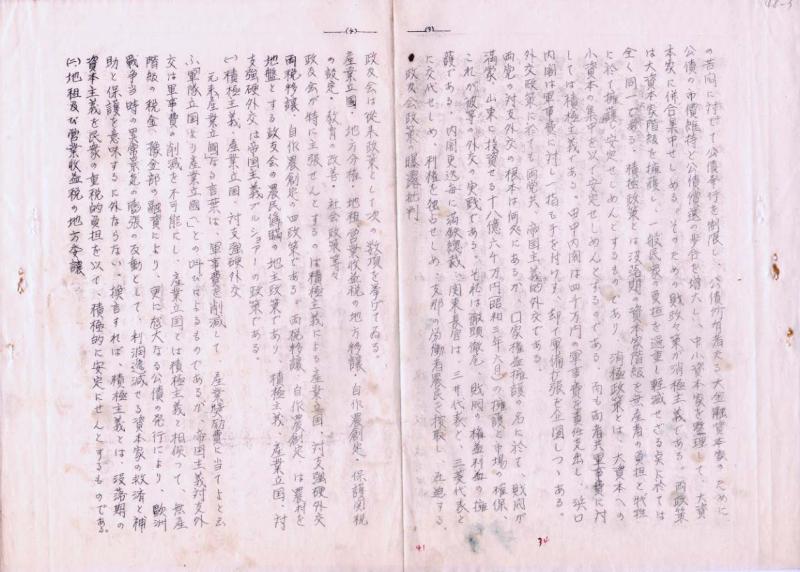 (3)
の苦悶に対せて公債発行を制限し、公債所有者たる大金融資本家のために
公債の市価維持と公債償還の歩合を増大し、中小資本家を整理して、大資
本家に併合集中せしめる。そのための財政々策が消極主義である。両政策
は大資本家階級を擁護し、一般民衆の負担を過重し軽減せざる点に於ては
全く同一である。積極政策とは没落期の資本家階級を無産者の負担と犠牲
に於て擁護し安定せしめんとするものであり、消極政策は、大資本への
小資本の集中を以て安定せしめんとするのである。而も両者共軍事費に対
しては積極主義である。田中内閣は四千万円の軍事費を責任支出し、浜口
内閣は軍事費に対し一指も手を付けず、却て軍備拡張を企図しつゝある。
外交政策に於ても両党共、帝国主義的外交である。
両党の対支外交の根本は何処にあるか、口家権益擁護の名に於て財閥が
満蒙、山東に投資せる十八億六千万円(昭和三年六月)の擁護と市場の確保、
これが彼等の外交の実践である。それは徹頭徹尾、財閥の権益利益の擁
護である。内閣更迭毎に満鉄総裁、関東長官は、三井代表と、三菱代表と
に交代せしめ、利権を独占せしめ、支那の労働者農民を搾取し、圧迫する。
● 政友会政策の曝露批判
34
41
(4)
政友会は従来政策として次の数項を挙げてゐる。
産業立国、地方分権、地租、営業収益税の地方移譲、自作農創定、保護関税
の設定、教育の改善、社会政策等々
政友会が特に主張せんとするのは積極主義による産業立国、対支強硬外交
両税移譲、自作農創定の四政策である。両税移譲、自作農創定は農村を
地盤とする政友会の農民偽瞞の地主政策であり、積極主義、産業立国、対
支強硬外交は帝国主義ブルジョアーの政策である。
㈠ 積極主義、産業立国、対支強硬外交
元来産業立国なる言葉は、軍事費を削減して、産業奨励費に当てよと云
ふ「軍隊立国より産業立国へ」との叫びによるものであるが、帝国主義対支外
交は軍事費の削減を不可能にし、産業立国では積極主義と相俟つて、無産
階級の税金、預金部の融資により、更に尨大なる公債の発行により、欧洲
戦争当時の異常景気の膨張の反動として、利潤逓減せる資本家の救済と補
助と保護を意味するに外ならない。換言すれば、積極主義とは、没落期の
資本主義を民衆の重税的負担を以て、積極的に安定にせんとするものである。
㈡ 地租及び営業収益税の地方委譲